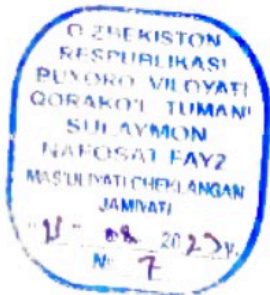 O'ZBEKISTON
RESPUBLIKASI
BUXORO VILOYATI
QORAKO'L TUMANI
SULAYMON
NAFOSAT FAYZ
MAS'ULIYATI CHEKLANGAN
JAMIYATI
" " 08 2023 y.
№ 7